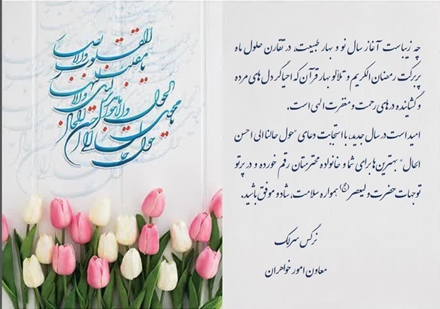 یا مقلب القلوب والابصار
یا مدبر اللیل والنهار
یا محول الحول والاحوال
حول حالنا الی احسن الحال
چه زیباست آغاز سال نو و بهار طبیعت، در تقارن حلول ماه
پربرکت رمضان الکریم و تلألو بهار قرآن که احیاگر دل های مرده
و گشاینده درهای رحمت و مغفرت الهی است.
امید است در سال جدید، با استجابت دعای "حول حالنا الی احسن
الحال" بهترین‌ها برای شما و خانواده محترمتان رقم خورده و در پرتو
توجهات حضرت ولیعصر (عج) همواره سلامت، شاد و موفق باشید.
نرگس سرلک
معاون امور خواهران